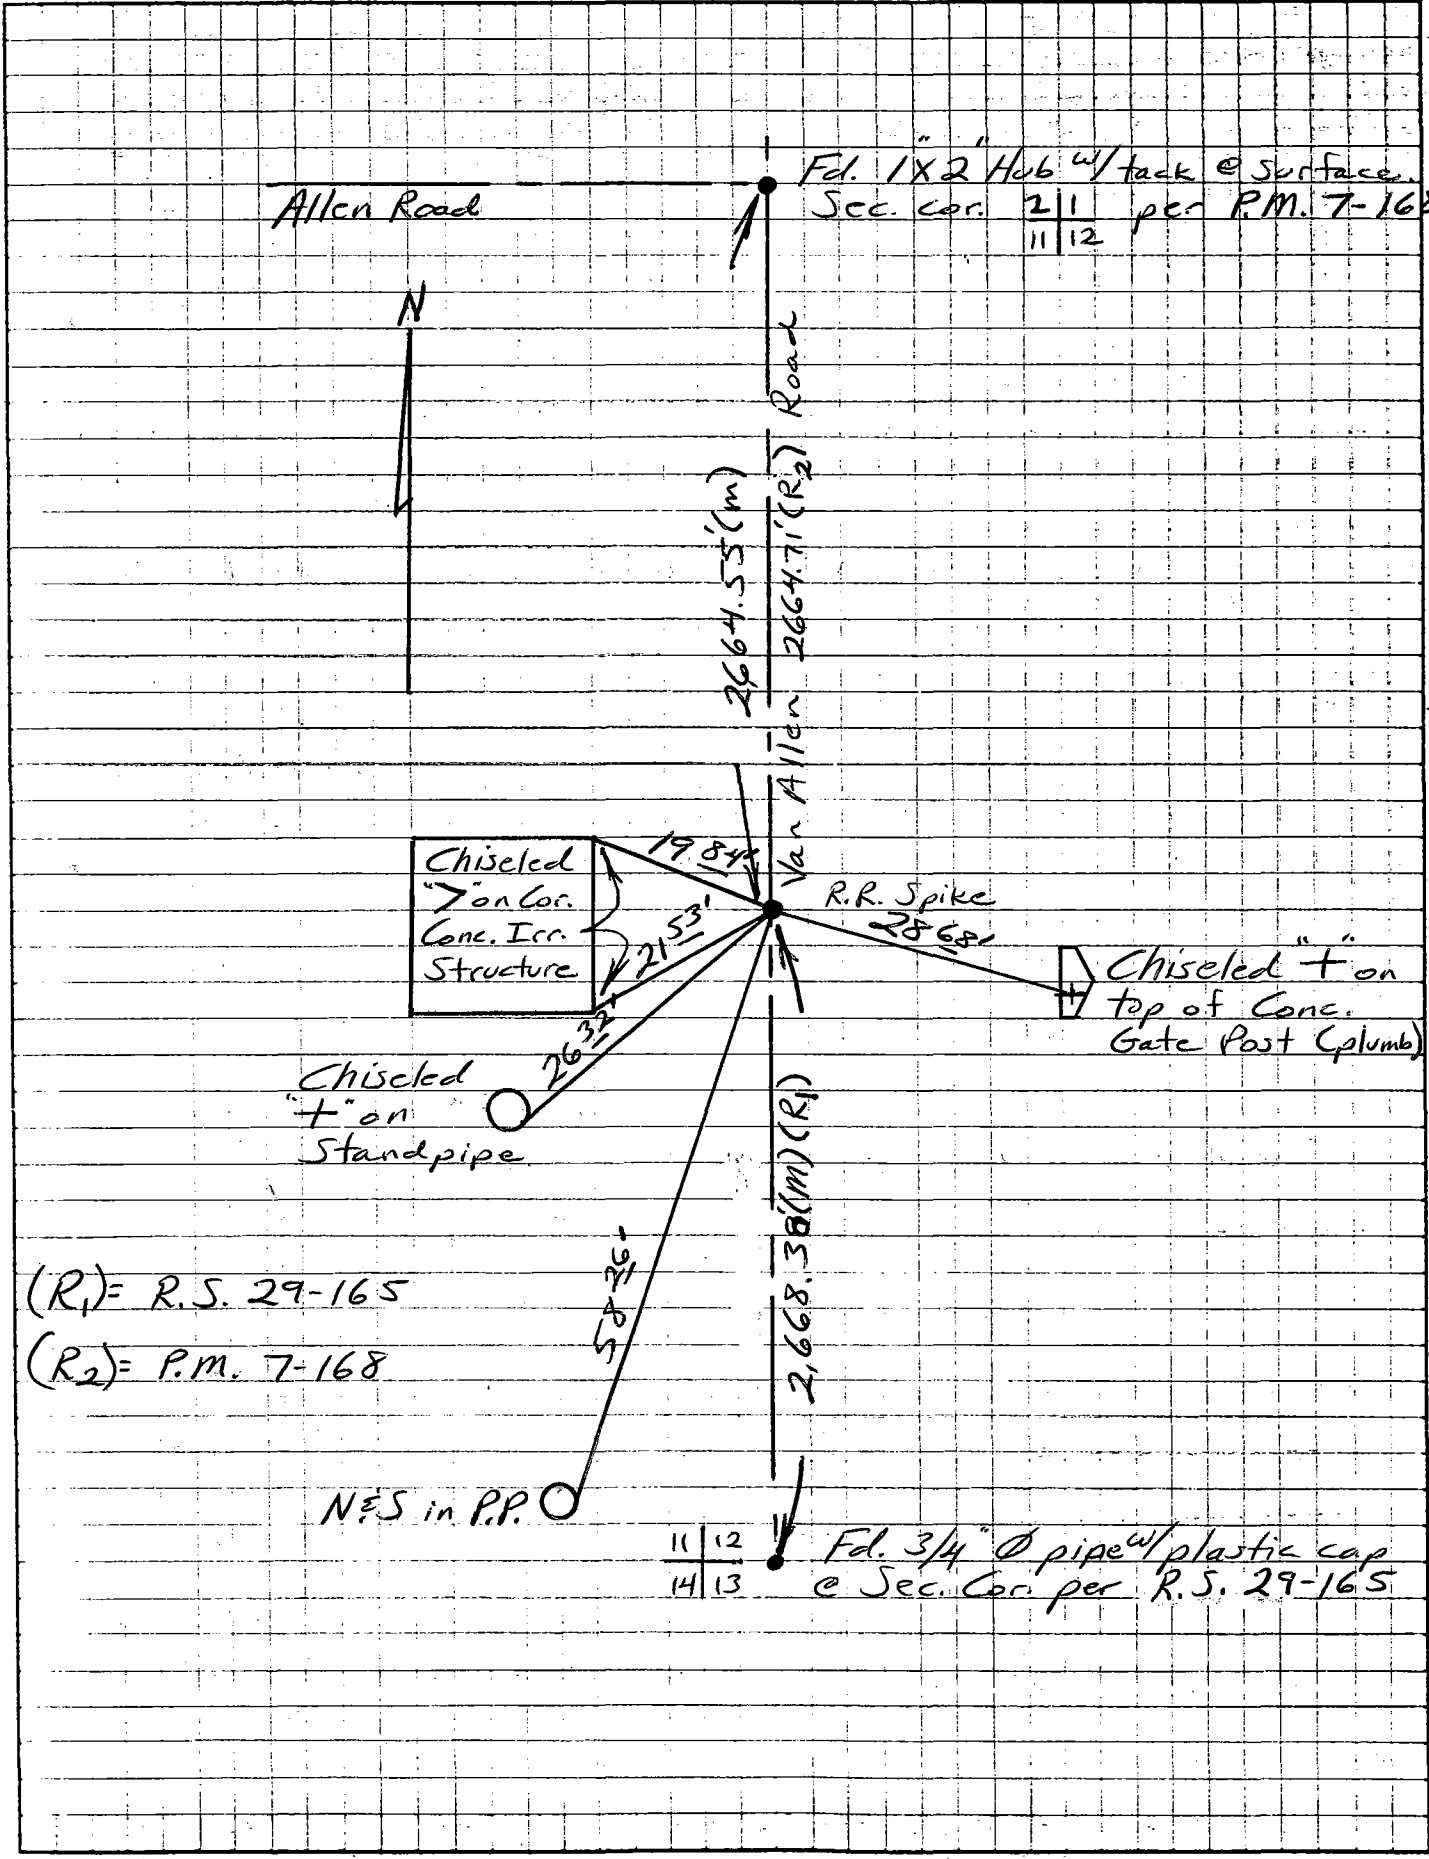 Fd. 1"X2" Hub w/ tack @ Surface.
Sec. cor. 2|1 11|12 per P.M. 7-168
Allen Road
N
2664.55'(m)
Van Allen 2664.71'(R2) Road
Chiseled
">" on Cor.
Conc. Irr.
Structure
19.84'
21.53'
26.32'
R.R. Spike
28.68'
Chiseled "+" on
top of Conc.
Gate Post (plumb)
Chiseled
"+" on
Standpipe
58.26'
(m)(R1)
(R1)= R.S. 29-165
(R2)= P.M. 7-168
N&S in P.P.
11|12
14|13
Fd. 3/4" Ø pipe w/ plastic cap
@ Sec. Cor. per R.S. 29-165